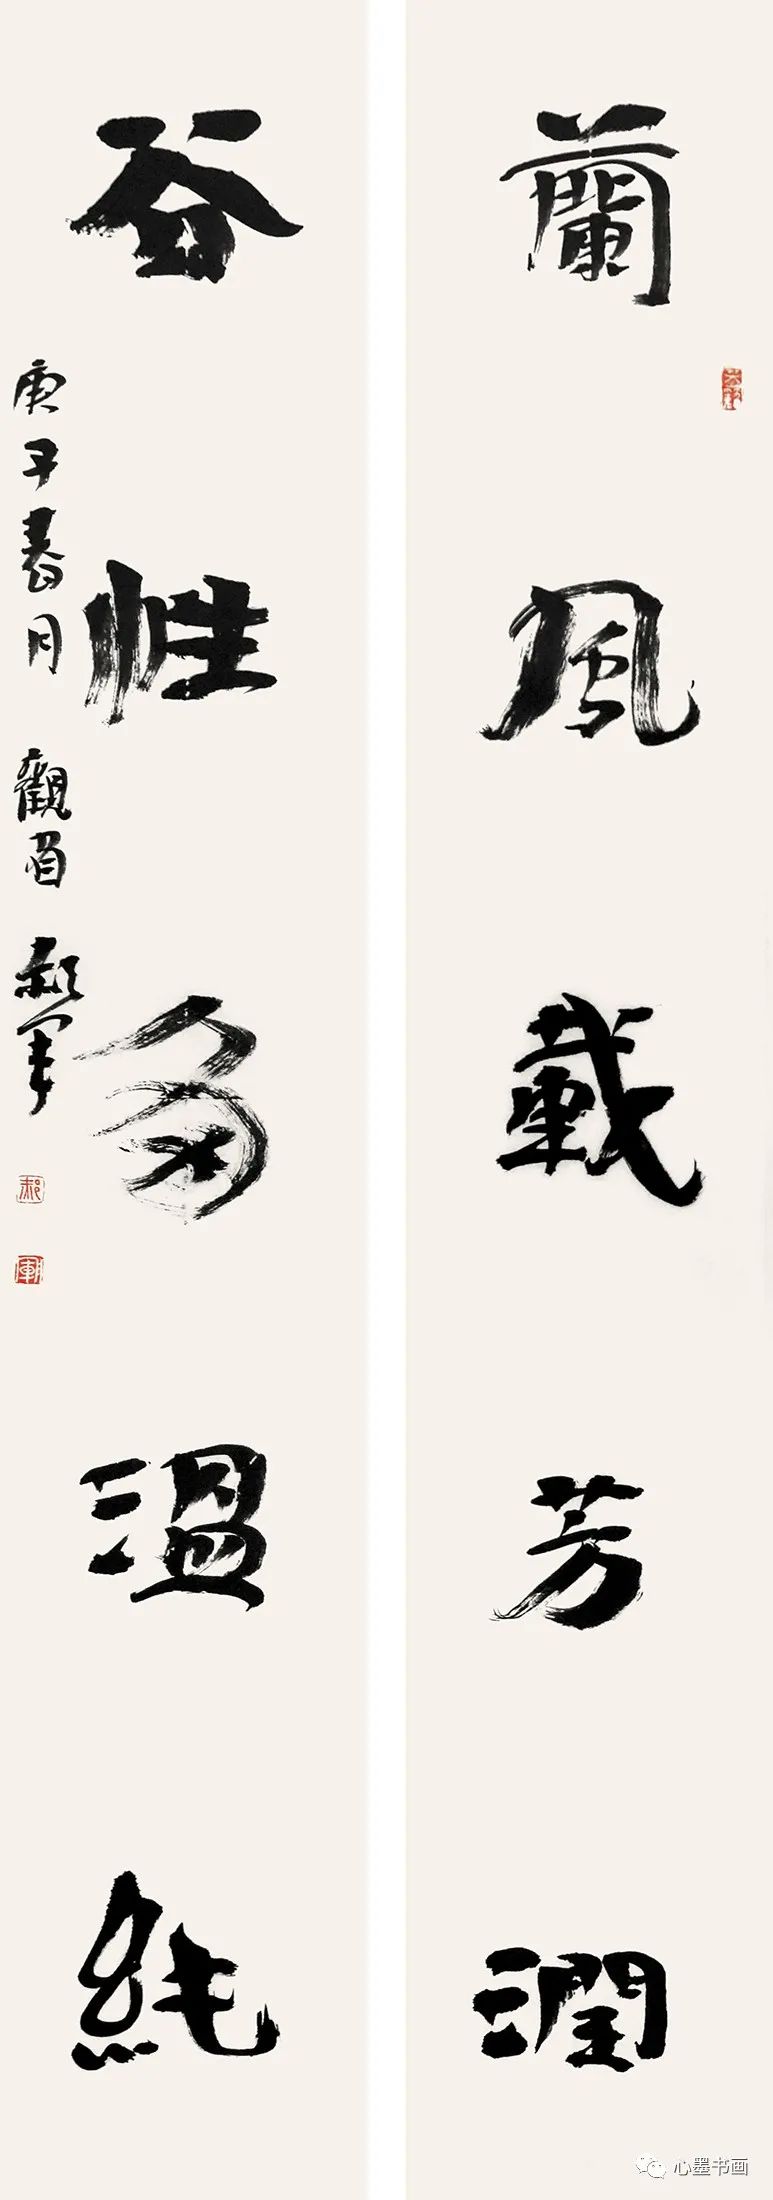 蘭風載芳潤
谷性多溫純
庚子春月 觀 郝軍
郝
心墨书画